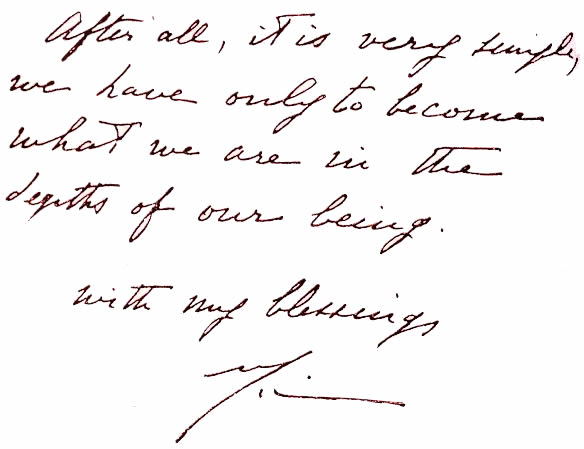 After all, it is very simple,
we have only to become
what we are in the
depths of our being.
with my blessings